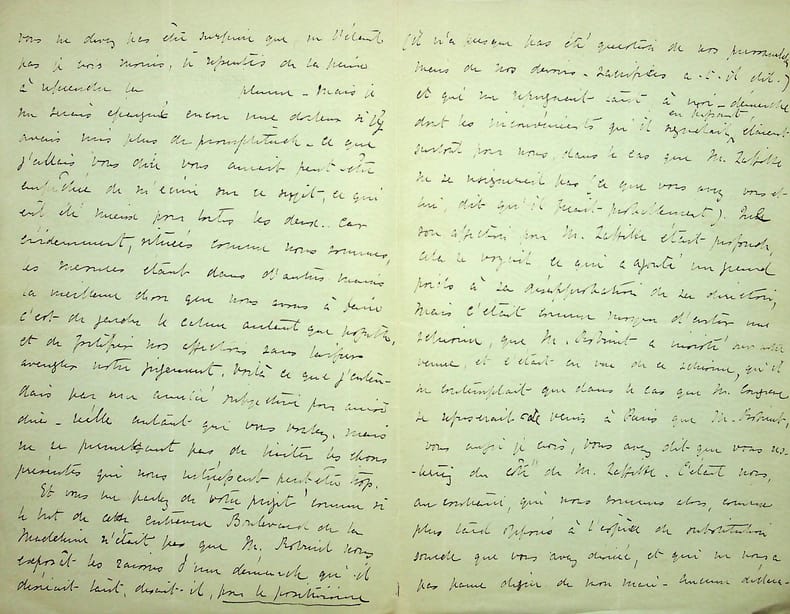 vous ne devez pas être surprise que, ne l'étant
pas je vous moins, la
à reprendre la plume - mais je
me serais épargné encore une douleur si j'y
avais mis plus de promptitude - ce que
j'allais vous dire vous aurait peut être
empêchée de m'écrire sur ce sujet, ce qui
eût été mieux pour toutes les deux. Car
évidemment, situées comme nous sommes,
les mesures étant dans d'autres mains
la meilleure chose que nous avons à faire
c'est de garder le calme autant que possible,
et de fortifier nos affections sans laisser
aveugler notre jugement. Voilà ce que j'enten-
dais par une amitié subjective pour ainsi
dire - réelle autant que vous voulez, mais
ne se permettant pas de traiter les choses
présentes qui nous intéressent peut être trop.
Et vous me parlez de votre projet comme si
le but de cette entrevue Boulevard de la
Madeleine n'était pas que M. Robinet nous
exposât les raisons d'une démarche qu'il
désirait tant, disait-il, pour le positivisme
(il n'a presque pas été question de nos
mais de nos devoirs - sacrifices a-t-il dit.)
et qui me répugnait tant à moi - démarche
dont les inconvénients qu'il regrettait, étaient
surtout pour nous, dans le cas que M. Laffitte
ne se resignerait pas (ce que vous avez vous et
lui, dit qu'il ferait probablement). Que
son affection pour M. Laffitte était profonde,
cela se voyait ce qui a ajouté un grand
poids à sa désapprobation de sa direction,
Mais c'était comme moyen d'éviter une
schisme, que M. Robinet a insisté sur notre
venue, et c'était en vue de ce schisme, qu'il
ne contemplait que dans le cas que M. Congreve
se refuserait de venir à Paris que M. Robinet,
vous aussi je crois, vous avez dit que vous res-
teriez du côté de M. Laffitte. C'était nous,
au contraire, qui nous sommes alors, comme
plus tard opposés à l'espèce de substitution
sourde que vous avez désirée, et qui ne nous a
pas parue digne de mon mari - aucune déclara-